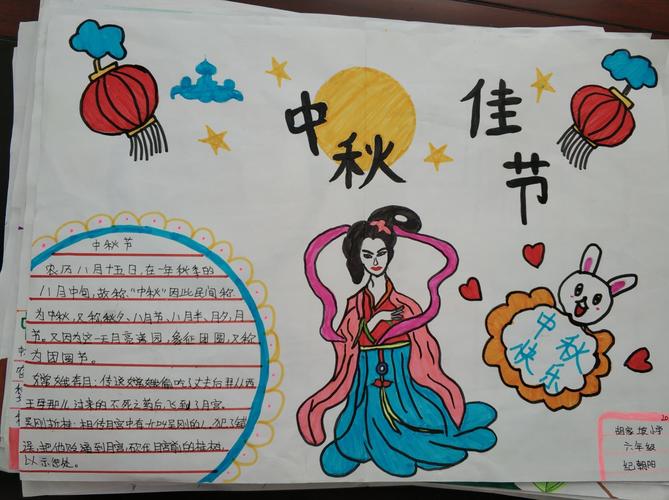 中秋
佳节
中秋节
农历八月十五日,在一年秋季的
八月中旬,故称"中秋"因此民间称
为中秋,又称秋夕、八月节、八月半、月夕,月
节。又因为这一天月亮满圆,象征团圆,又称
为团圆节。
嫦娥奔月:传说嫦娥偷吃了丈夫后羿从西
王母那儿过来的不死之药后,飞到了月宫。
吴刚折桂:相传月宫中有个叫吴刚的人,犯了错
误,把他贬谪到月宫,砍伐月宫前的桂树,
以示惩处。
中秋
快乐
20
胡家坡小学
六年级
纪朝阳